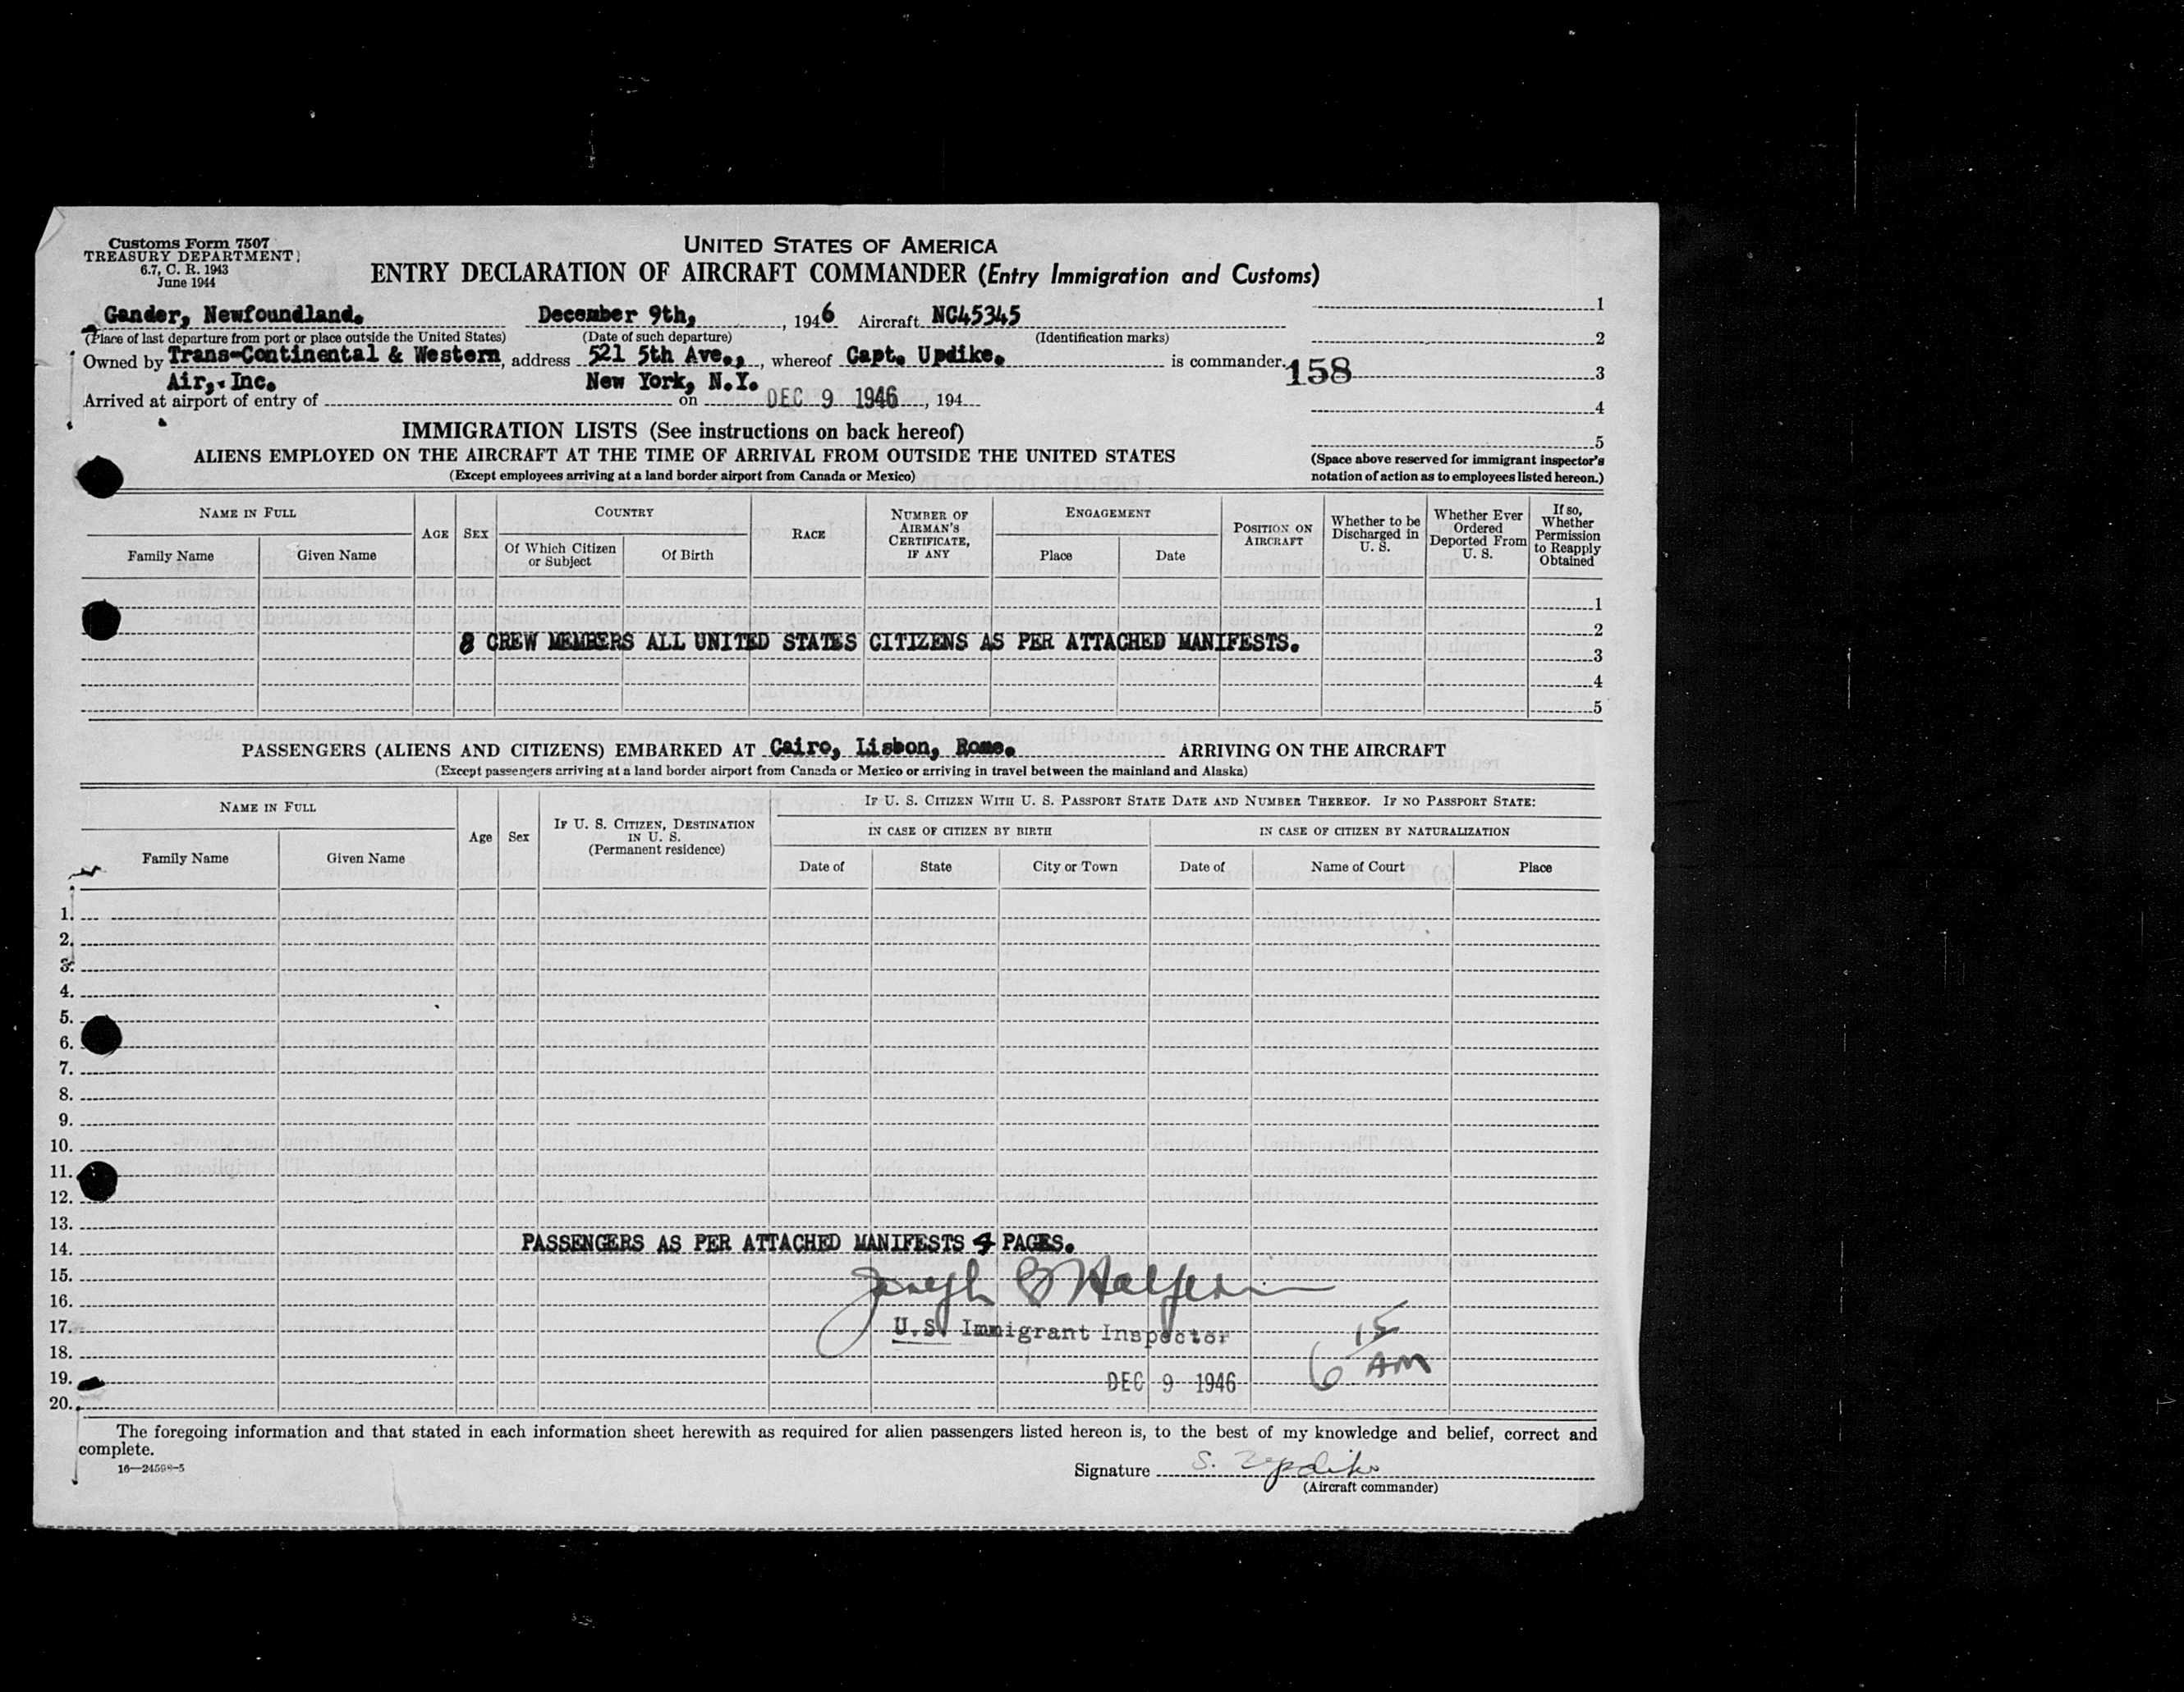 Customs Form 7507
TREASURY DEPARTMENT
6.7, C. R. 1943
June 1944
UNITED STATES OF AMERICA
ENTRY DECLARATION OF AIRCRAFT COMMANDER (Entry Immigration and Customs)
Gander, Newfoundland. December 9th, , 1946 Aircraft NC45345 1
(Place of last departure from port or place outside the United States) (Date of such departure) (Identification marks)
2
Owned by Trans-Continental & Western, address 521 5th Ave., , whereof Capt. Updike. is commander. 158 3
Air, Inc. New York, N.Y.
Arrived at airport of entry of on DEC 9 1946 , 194
4
IMMIGRATION LISTS (See instructions on back hereof)
5
ALIENS EMPLOYED ON THE AIRCRAFT AT THE TIME OF ARRIVAL FROM OUTSIDE THE UNITED STATES
(Except employees arriving at a land border airport from Canada or Mexico)
(Space above reserved for immigrant inspector's
notation of action as to employees listed hereon.)
NAME IN FULL
Family Name Given Name
AGE SEX
COUNTRY
Of Which Citizen or Subject Of Birth
RACE
NUMBER OF AIRMAN'S CERTIFICATE, IF ANY
ENGAGEMENT
Place Date
POSITION ON AIRCRAFT
Whether to be Discharged in U. S.
Whether Ever Ordered Deported From U. S.
If so, Whether Permission to Reapply Obtained
1
2
8 CREW MEMBERS ALL UNITED STATES CITIZENS AS PER ATTACHED MANIFESTS.
3
4
5
PASSENGERS (ALIENS AND CITIZENS) EMBARKED AT Cairo, Lisbon, Rome. ARRIVING ON THE AIRCRAFT
(Except passengers arriving at a land border airport from Canada or Mexico or arriving in travel between the mainland and Alaska)
NAME IN FULL
Family Name Given Name
Age Sex
IF U. S. CITIZEN, DESTINATION IN U. S.
(Permanent residence)
IF U. S. CITIZEN WITH U. S. PASSPORT STATE DATE AND NUMBER THEREOF. IF NO PASSPORT STATE:
IN CASE OF CITIZEN BY BIRTH IN CASE OF CITIZEN BY NATURALIZATION
Date of State City or Town Date of Name of Court Place
1.
2.
3.
4.
5.
6.
7.
8.
9.
10.
11.
12.
13.
14. PASSENGERS AS PER ATTACHED MANIFESTS 4 PAGES.
15. Joseph
16.
17. U.S. Immigrant Inspector 6 15 AM
18.
19. DEC 9 1946
20.
The foregoing information and that stated in each information sheet herewith as required for alien passengers listed hereon is, to the best of my knowledge and belief, correct and
complete.
16—24598-5
Signature S. Updike
(Aircraft commander)